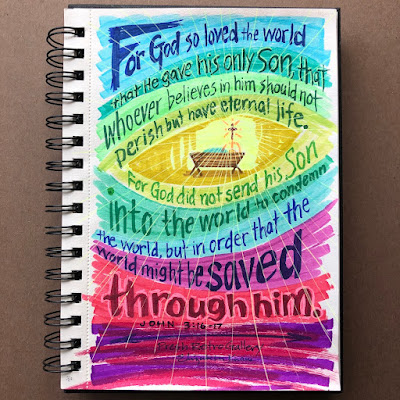 For God so loved the world
that He gave his only Son, that
whoever believes in him should not
perish but have eternal life.
For God did not send his Son
into the world to condemn
the world, but in order that the
world might be saved
through him.
JOHN 3:16-17